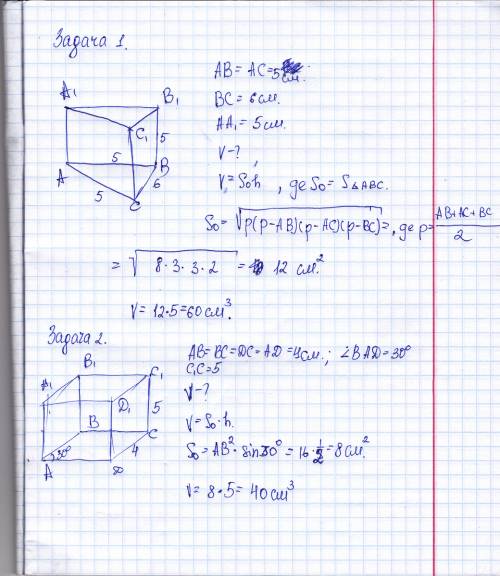 Задача 1.
A1 B1
C1 5
A 5 B
5 6
C
AB = AC = 5 см.
BC = 6 см.
AA₁ = 5 см.
V - ?
V = S₀h, де S₀ = S△ABC.
S₀ = √p(p-AB)(p-AC)(p-BC) =, де p = AB+AC+BC / 2
= √8·3·3·2 = 12 см²
V = 12·5 = 60 см³.
Задача 2.
B1 C1
A1 D1
B 5
C
A 30° 4
D
AB = BC = DC = AD = 4 см.; ∠BAD = 30°
C₁C = 5
V - ?
V = S₀·h.
S₀ = AB²·sin30° = 16·1/2 = 8 см²
V = 8·5 = 40 см³